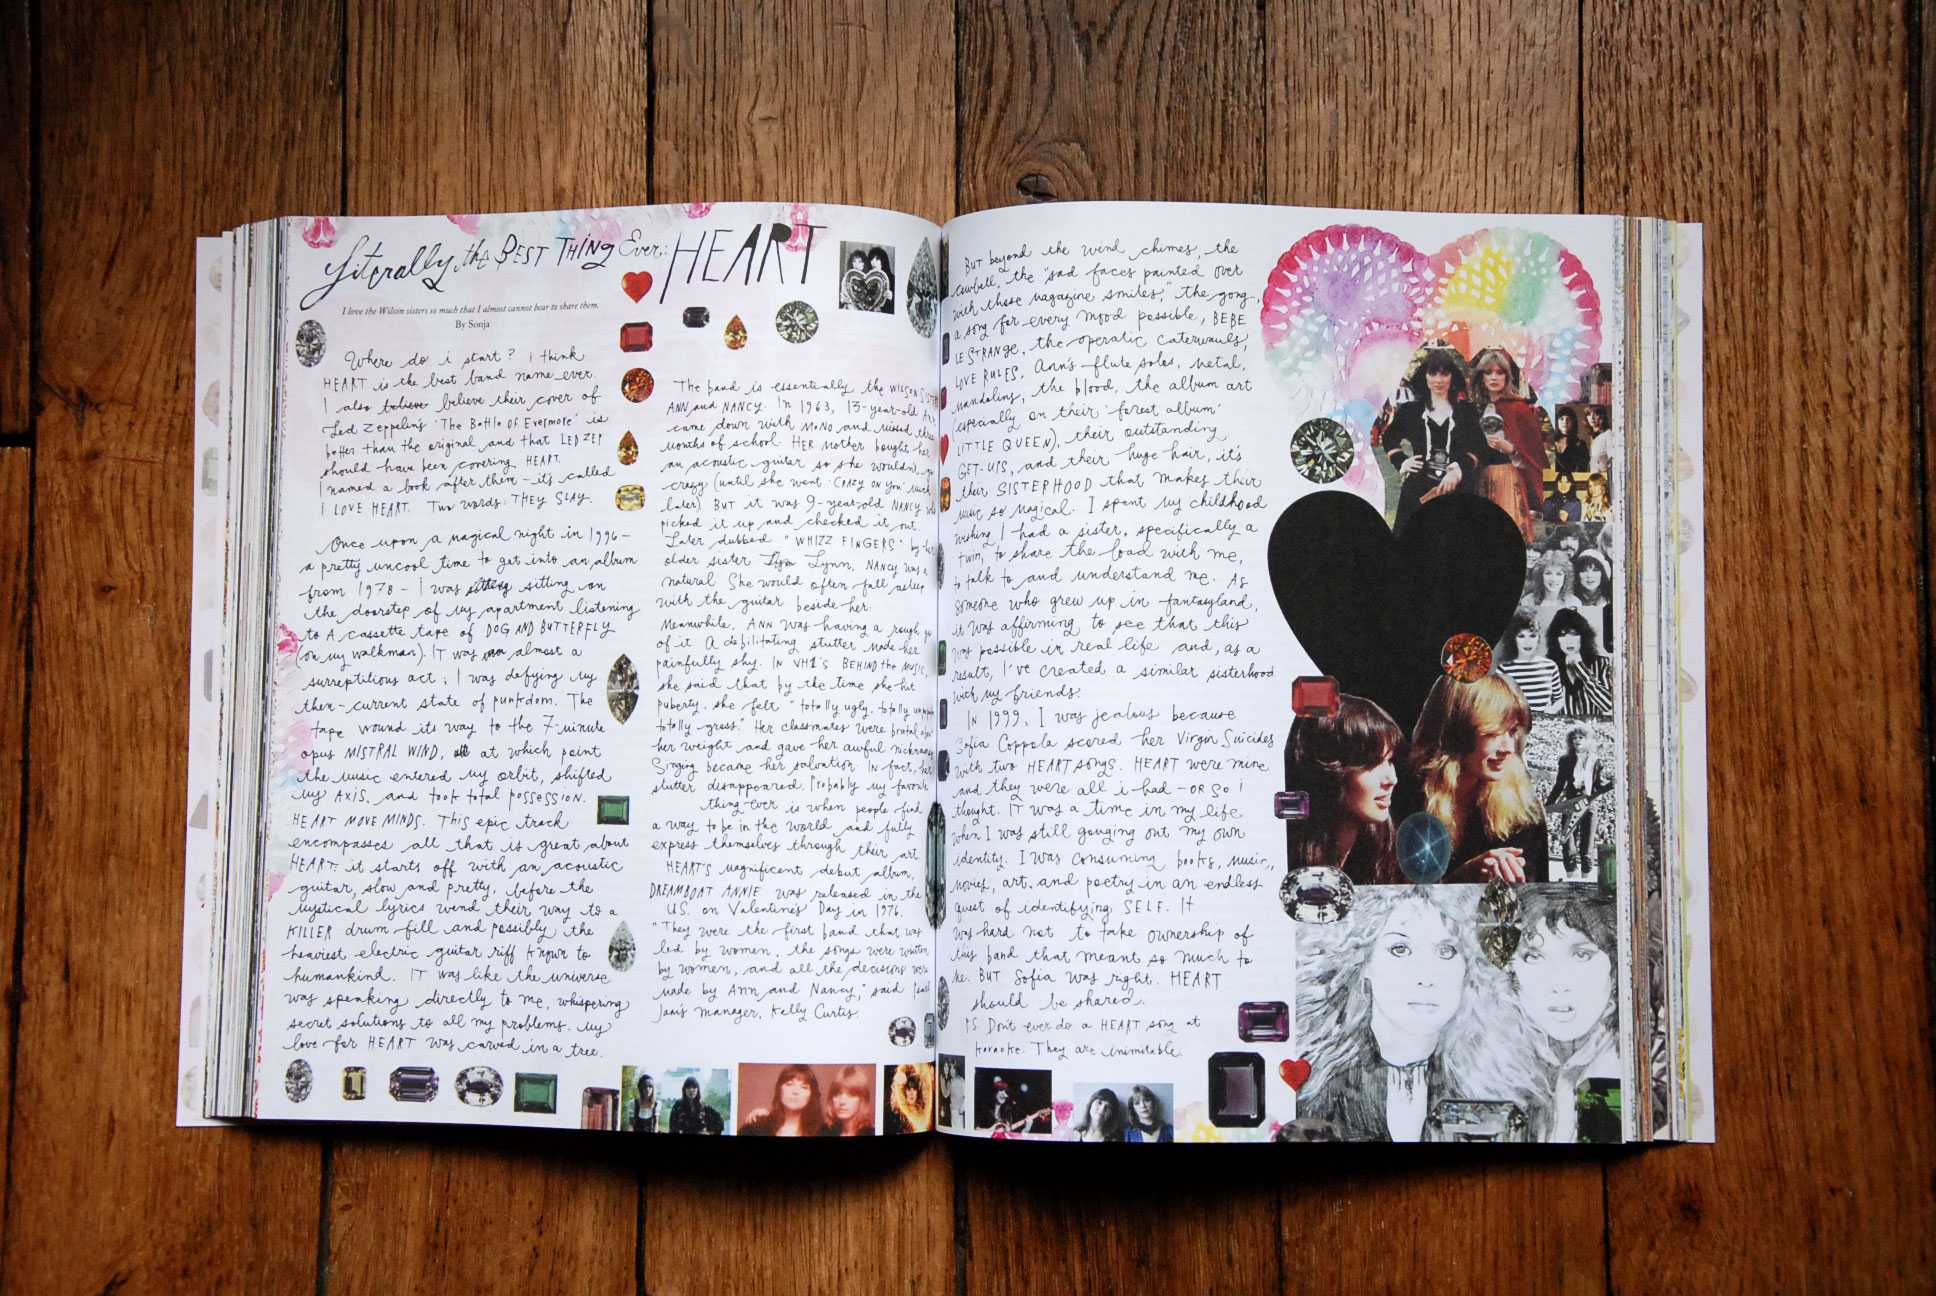 Literally the BEST THING Ever: HEART
I love the Wilson sisters so much that I almost cannot bear to share them.
By Sonja
Where do i start? i think
HEART is the best band name ever.
I also believe believe their cover of
Led Zeppelin's 'The Battle of Evermore' is
better than the original and that LED ZEP
should have been covering HEART.
I named a book after them - it's called
I LOVE HEART. Two words: THEY SLAY.
Once upon a magical night in 1996 -
a pretty uncool time to get into an album
from 1978 - I was sitting on
the doorstep of my apartment listening
to A cassette tape of DOG AND BUTTERFLY
(on my walkman). IT was almost a
surreptitious act; I was defying my
then-current state of punkdom. The
tape wound its way to the 7-minute
opus MISTRAL WIND, at which point
the music entered my orbit, shifted
my AXIS, and took total possession.
HEART MOVE MINDS. This epic track
encompasses all that is great about
HEART: it starts off with an acoustic
guitar, slow and pretty, before the
mystical lyrics wend their way to a
KILLER drum fill and possibly the
heaviest electric guitar riff known to
humankind. IT was like the universe
was speaking directly to me, whispering
secret solutions to all my problems. My
love for HEART was carved in a tree.
The band is essentially the WILSON
ANN and NANCY. In 1963, 13-year-old Ann
came down with MONO and missed three
months of school. HER mother bought her
an acoustic guitar so she wouldn't go
crazy (until she went 'CRAZY ON YOU' much
later). BUT it was 9-year-old NANCY who
picked it up and checked it out.
Later dubbed "WHIZZ FINGERS" by her
older sister Lynn, NANCY was a
natural. She would often fall asleep
with the guitar beside her.
Meanwhile, ANN was having a rough go
of it. A debilitating stutter made her
painfully shy. IN VH1'S BEHIND the MUSIC,
she said that by the time she hit
puberty, she felt "totally ugly, totally
totally gross." Her classmates were brutal about
her weight and gave her awful nicknames.
Singing became her salvation. IN fact, her
stutter disappeared. Probably my favorite
thing ever is when people find
a way to be in the world and fully
express themselves through their art.
HEART'S magnificent debut album,
DREAMBOAT ANNIE was released in the
U.S. on Valentine's Day in 1976.
"They were the first band that was
led by women, the songs were written
by women, and all the decisions were
made by Ann and Nancy," said
manager, Kelly Curtis.
BUT beyond the wind chimes, the
cowbell, the "sad faces painted over
with those magazine smiles," the gong,
a song for every mood possible, BEBE
LE STRANGE, the operatic caterwauls,
LOVE RULES, Ann's flute solos, metal,
mandolins, the blood, the album art
(especially on their 'forest album'
LITTLE QUEEN), their outstanding
GET-UPS, and their huge hair, it's
their SISTERHOOD that makes their
music so magical. I spent my childhood
wishing I had a sister, specifically a
twin, to share the load with me,
to talk to and understand me. As
someone who grew up in fantasyland,
it was affirming to see that this
was possible in real life and, as a
result, I've created a similar sisterhood
with my friends.
IN 1999, I was jealous because
Sofia Coppola scored her Virgin Suicides
with two HEART songs. HEART were mine
and they were all i had - OR SO I
thought. IT was a time in my life
when I was still gouging out my own
identity. I was consuming books, music,
movies, art, and poetry in an endless
quest of identifying SELF. It
was hard not to take ownership of
this band that meant so much to
me. BUT Sofia was right. HEART
should be shared.
PS Don't ever do a HEART song at
karaoke. They are inimitable.